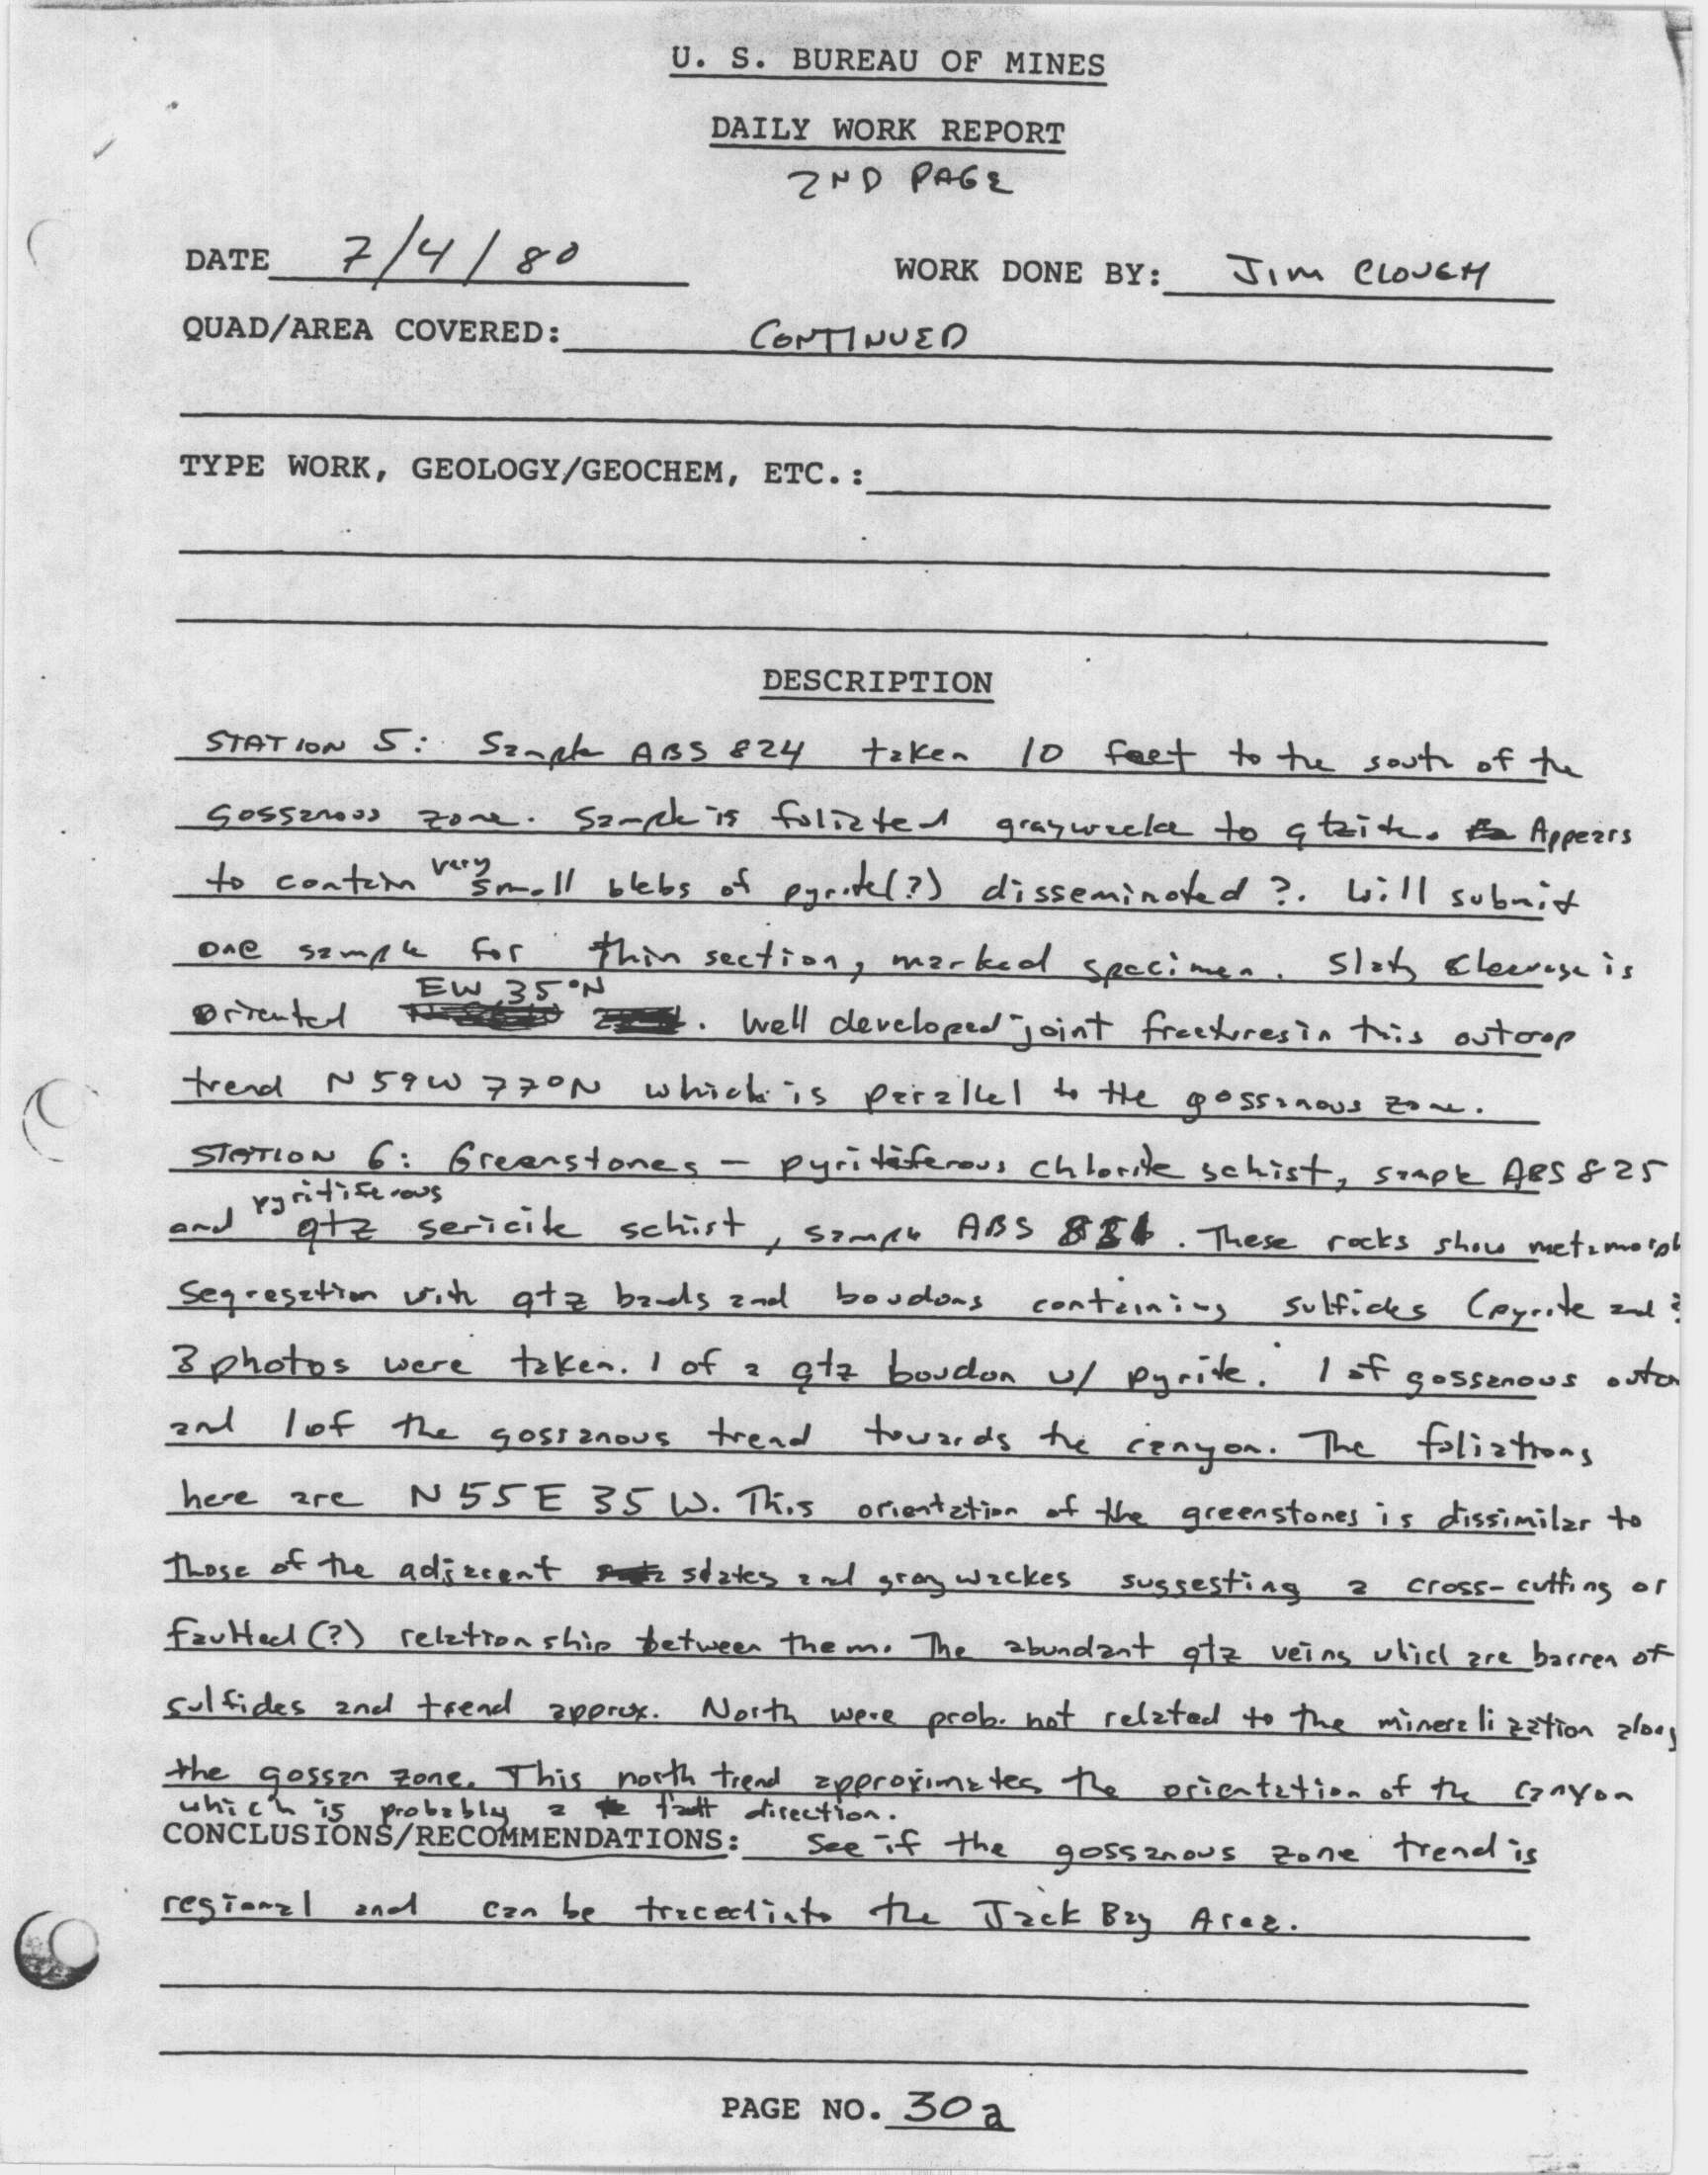 U. S. BUREAU OF MINES
DAILY WORK REPORT
2ND PAGE
DATE 7/4/80 WORK DONE BY: Jim CLOUGH
QUAD/AREA COVERED: CONTINUED
TYPE WORK, GEOLOGY/GEOCHEM, ETC.:
DESCRIPTION
STATION 5: Sample ABS 824 taken 10 feet to the south of the
gossanous zone. Sample is foliated graywacke to qtzite. Appears
to contain very small blebs of pyrite(?) disseminated ?. Will submit
one sample for thin section, marked specimen. Slaty cleavage is
oriented EW 35°N. Well developed joint fractures in this outcrop
trend N59W 77°N which is parallel to the gossanous zone.
STATION 6: Greenstones - pyritiferous chlorite schist, sample ABS 825
and pyritiferous qtz sericite schist, sample ABS. These rocks show metamorph
segregation with qtz bands and boudons containing sulfides (pyrite and ?
3 photos were taken. 1 of a qtz boudon w/ pyrite. 1 of gossanous outcr
and 1 of the gossanous trend towards the canyon. The foliations
here are N55E 35W. This orientation of the greenstones is dissimilar to
those of the adjacent slates and graywackes suggesting a cross-cutting or
faulted (?) relationship between them. The abundant qtz veins which are barren of
sulfides and trend approx. North were prob. not related to the mineralization along
the gossan zone. This north trend approximates the orientation of the canyon
which is probably a fault direction.
CONCLUSIONS/RECOMMENDATIONS: See if the gossanous zone trend is
regional and can be traced into the Jack Bay Area.
PAGE NO. 30a